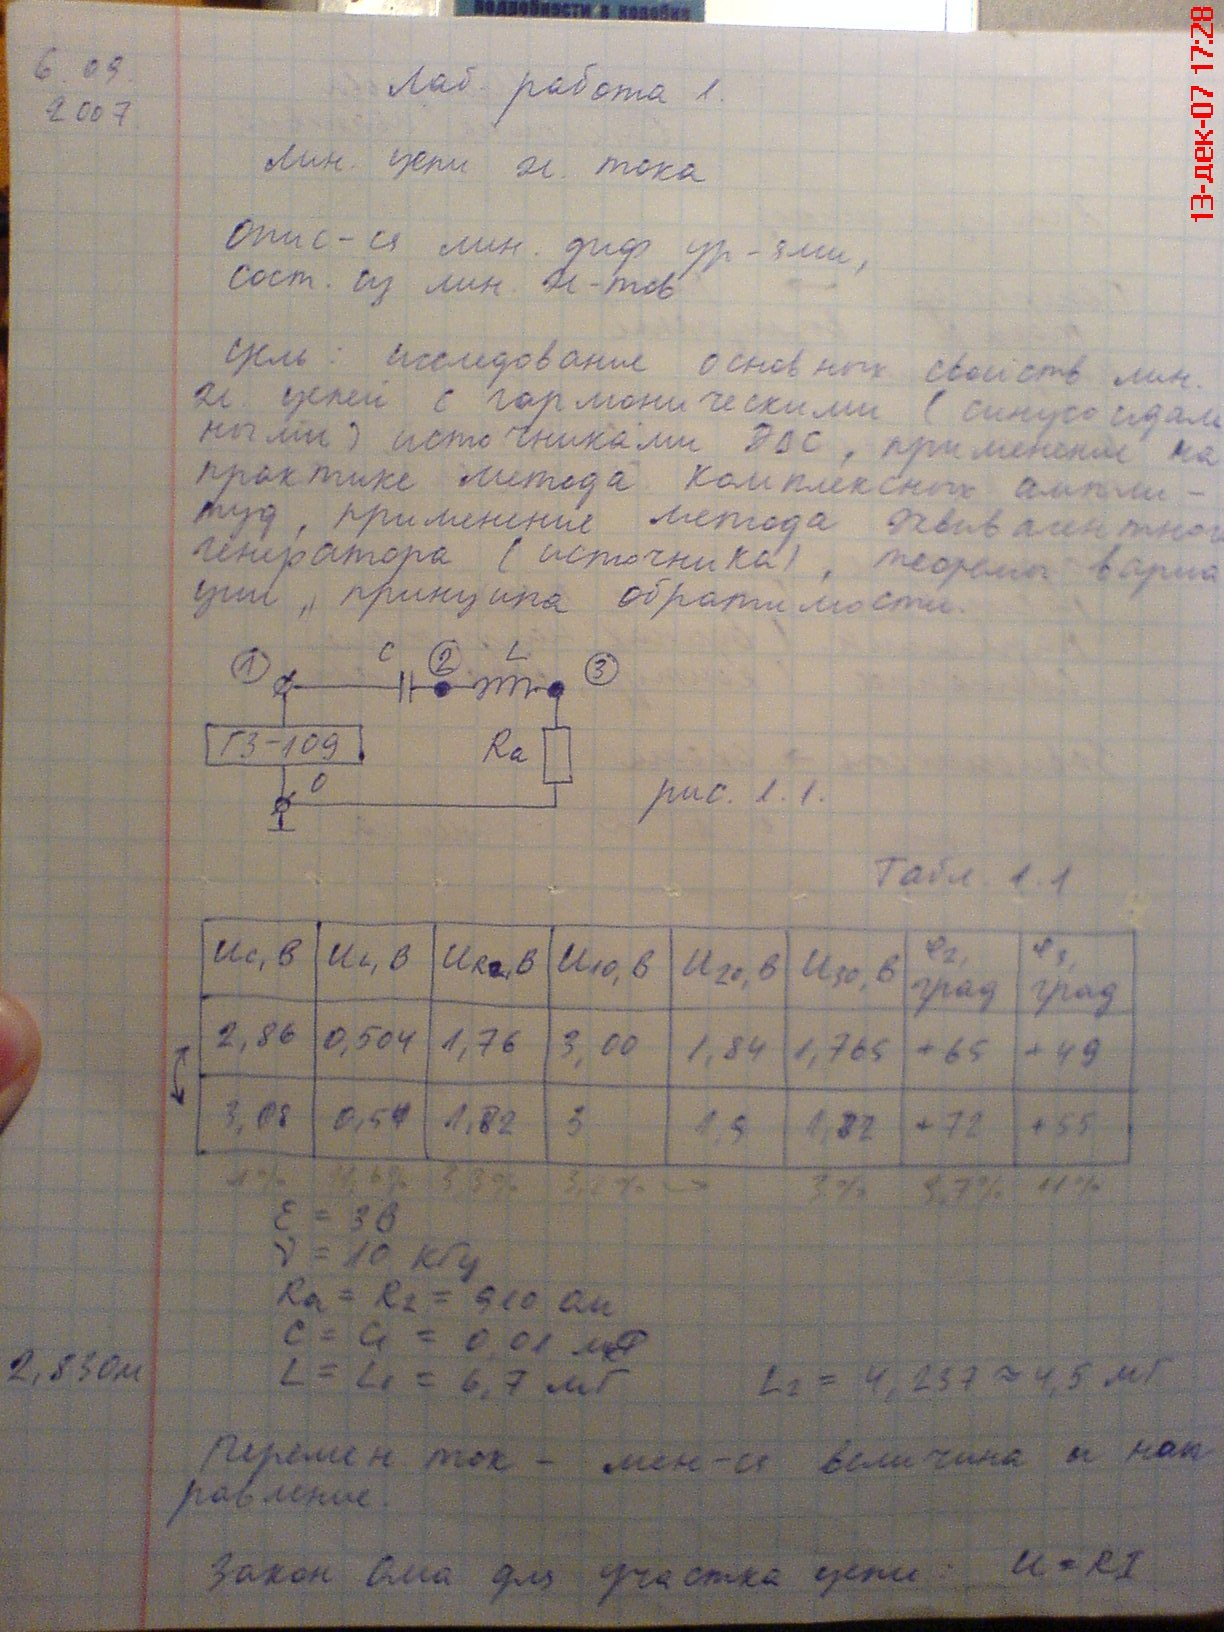 подробности в коробке
13-дек-07 17:28
6.09.
2007
Лаб. работа 1.
Лин. цепи эл. тока
Опис-ся лин. диф ур-ями,
сост. из лин. эл-тов
Цель: исследование основных свойств лин.
эл. цепей с гармоническими (синусоидаль
ными) источниками ЭДС, применение на
практике метода комплексных ампли-
туд, применение метода эквивалентног
генератора (источника), теоремы вариа
ции, принципа обратимости.
1 C 2 L 3
Г3-109 Ra
0
рис. 1.1.
Табл. 1.1
Uc, В UL, В URa, В U10, В U20, В U30, В φ2, град φ3, град
2,86 0,504 1,76 3,00 1,84 1,765 +65 +49
3,08 0,51 1,82 3 1,9 1,82 +72 +55
3% 9,7% 11%
ε = 3В
ν = 10 кГц
Ra = R2 = 910 Ом
C = C1 = 0,01 мкФ
L = L1 = 6,7 мГ L2 = 4,237 ≈ 4,5 мГ
2,83Ом
Перемен ток - мен-ся величина и нап
равление.
Закон Ома для участка цепи: U = RI